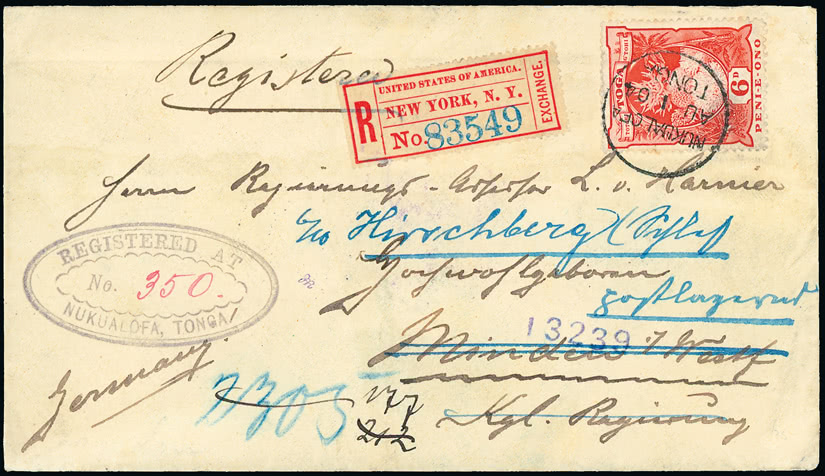 Registered
UNITED STATES OF AMERICA.
R NEW YORK, N. Y.
No. 83549
EXCHANGE.
TOGA
6D
PENI-E-ONO
NUKUALOFA
AU 1 04
TONGA
Herrn Regierungs-Assessor L. v. Harnier
Hirschberg (Schles
Hochwohlgeboren
postlagernd
13239
Minden i/ Westf
Kgl. Regierung
REGISTERED AT
No. 350.
NUKUALOFA, TONGA
Germany.
177
212